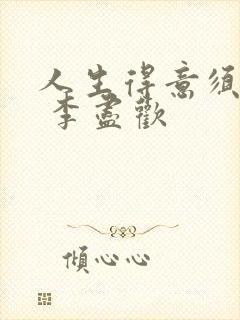 人生得意须
李盡歡
傾心心